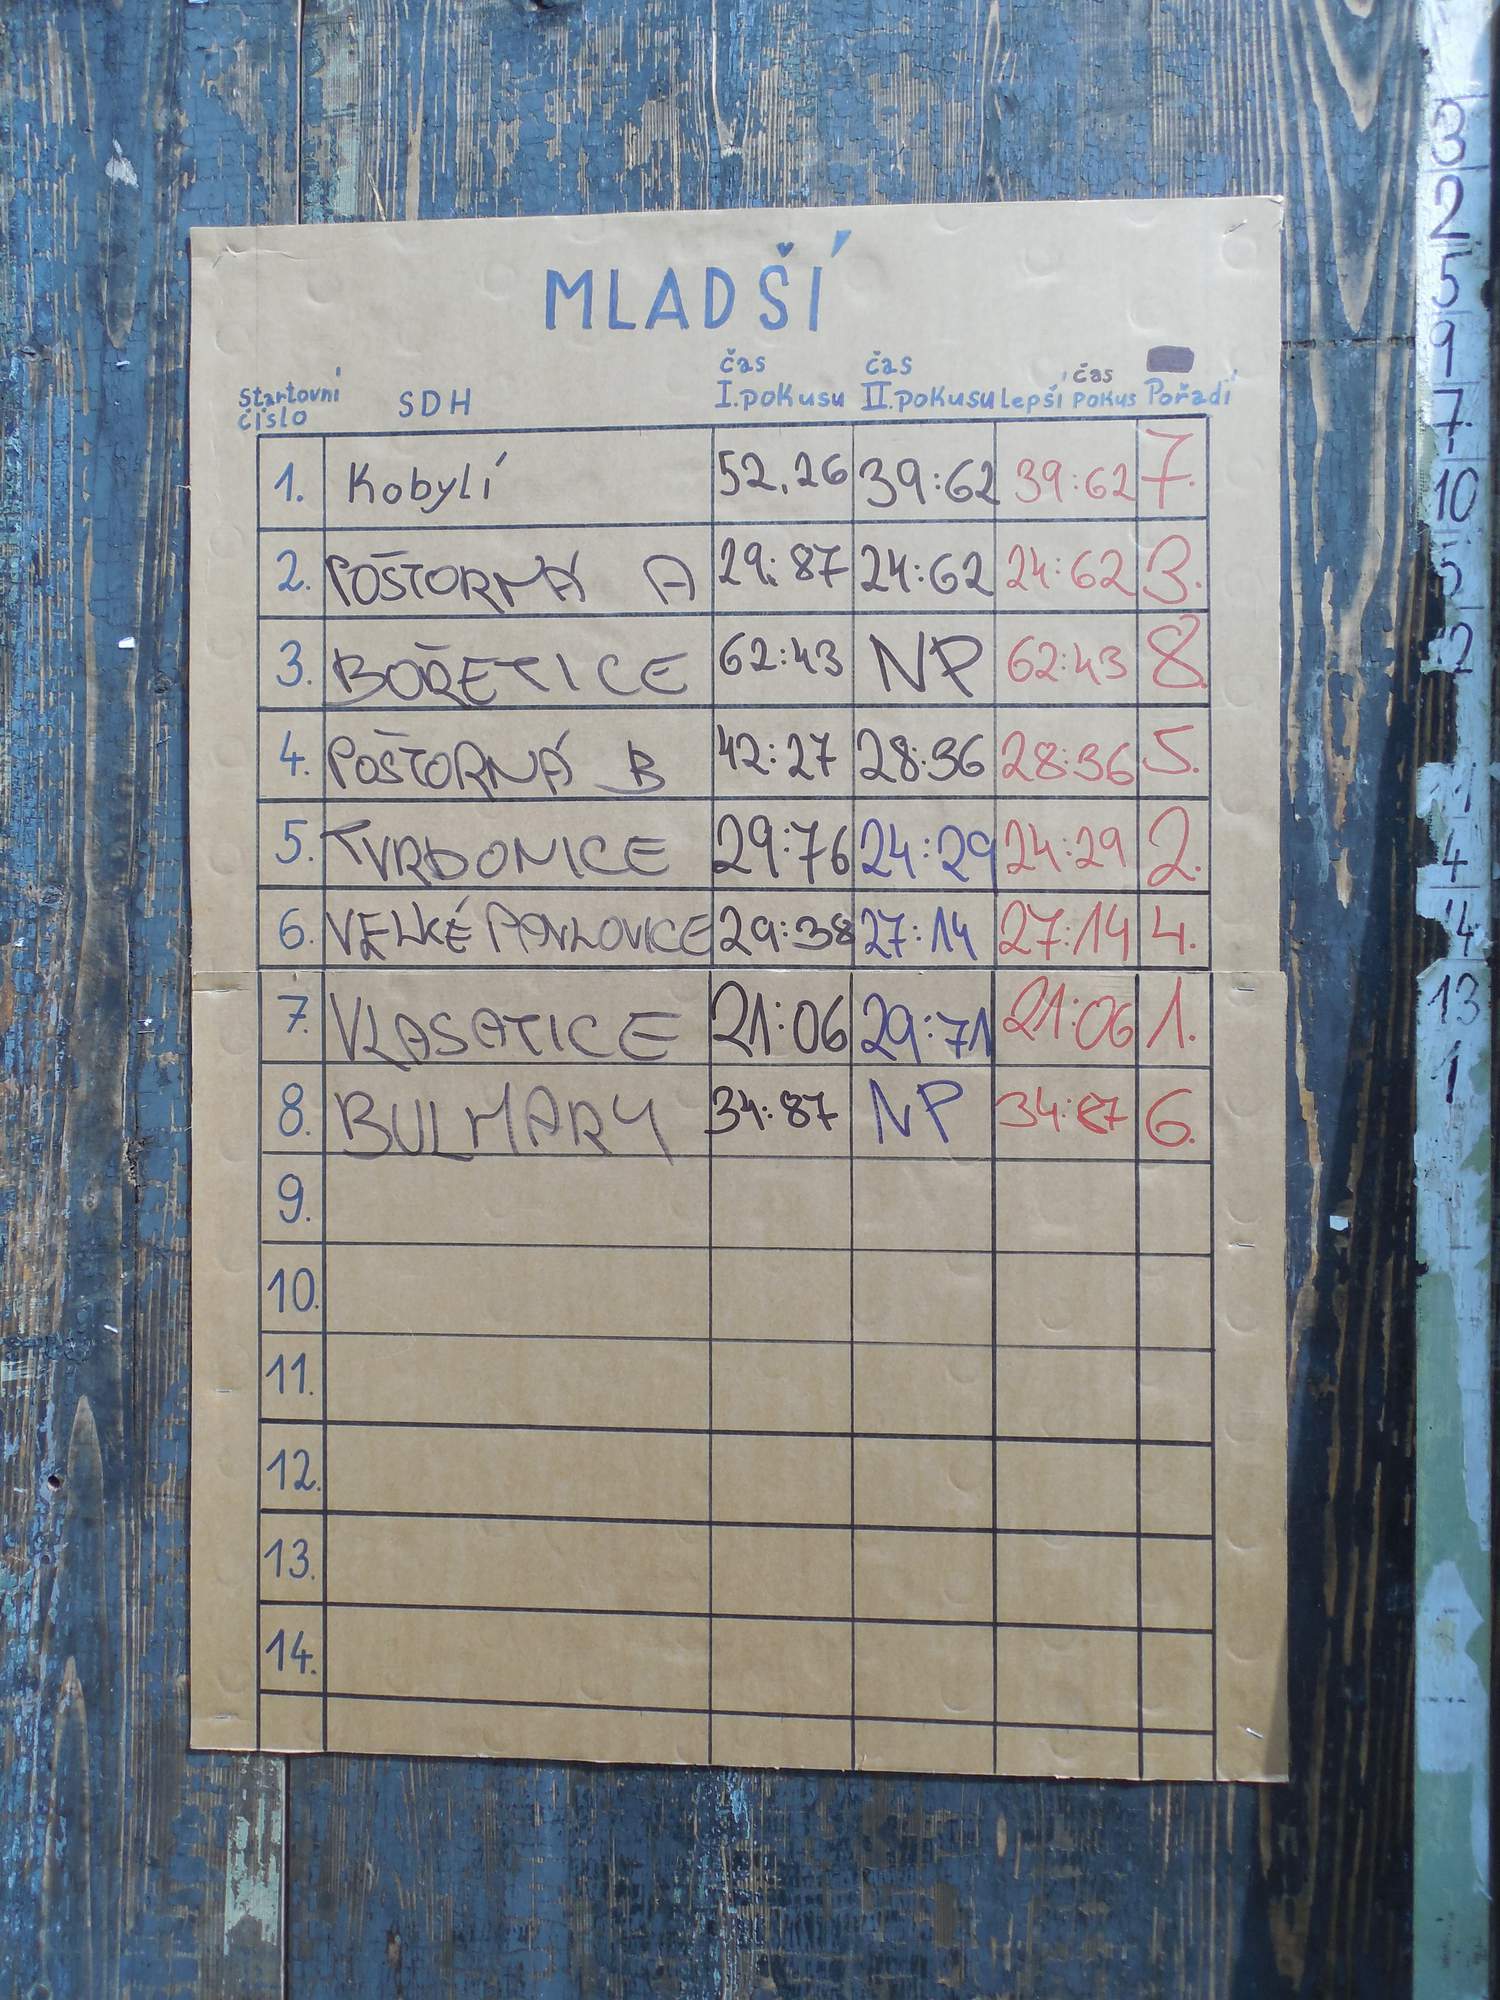 MLADŠÍ
Startovní číslo SDH čas I. pokusu čas II. pokusu Lepší čas pokus Pořadí
1. Kobylí 52,26 39:62 39:62 7.
2. POŠTORNÁ A 29:87 24:62 24:62 3.
3. BOŘETICE 62:43 NP 62:43 8.
4. POŠTORNÁ B 42:27 28:36 28:36 5.
5. TVRDONICE 29:76 24:29 24:29 2.
6. VELKÉ PAVLOVICE 29:38 27:14 27:14 4.
7. VLASATICE 21:06 29:71 21:06 1.
8. BULHARY 34:87 NP 34:87 6.
9.
10.
11.
12.
13.
14.
3
2
5
9
7
10
5
2
4
4
13
1